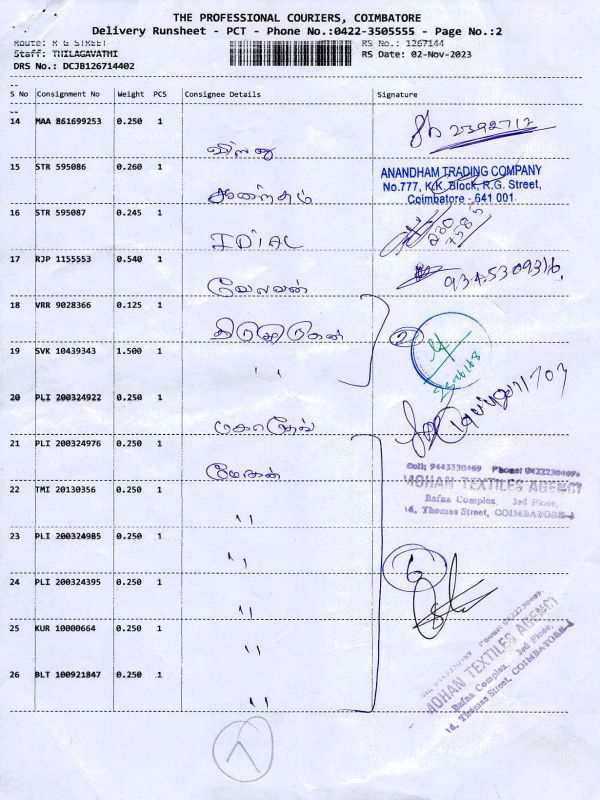 THE PROFESSIONAL COURIERS, COIMBATORE
Delivery Runsheet - PCT - Phone No.:0422-3505555 - Page No.:2
Route: R G STREET RS No.: 1267144
Staff: THILAGAVATHI RS Date: 02-Nov-2023
DRS No.: DCJB126714402
S No Consignment No Weight PCS Consignee Details Signature
14 MAA 861699253 0.250 1
15 STR 595086 0.260 1
ANANDHAM TRADING COMPANY
No.777, K.K. Block, R.G. Street,
Coimbatore - 641 001
ஆனந்தம்
16 STR 595087 0.245 1
IDIAL
17 RJP 1155553 0.540 1
வேலவன்
18 VRR 9028366 0.125 1
திருமுருகன் 2
19 SVK 10439343 1.500 1
''
20 PLI 200324922 0.250 1
மகாதேவ்
21 PLI 200324976 0.250 1
மோகன்
Cell: 9443230469 Phone: 04222304096
MOHAN TEXTILES AGENCY
Bafna Complex, 3rd Floor,
14, Thomas Street, COIMBATORE-1
22 TMI 20130356 0.250 1
''
23 PLI 200324985 0.250 1
''
6
24 PLI 200324395 0.250 1
''
25 KUR 10000664 0.250 1
''
26 BLT 100921847 0.250 1
''
MOHAN TEXTILES AGENCY
Bafna Complex, 3rd Floor,
14, Thomas Street, COIMBATORE-1